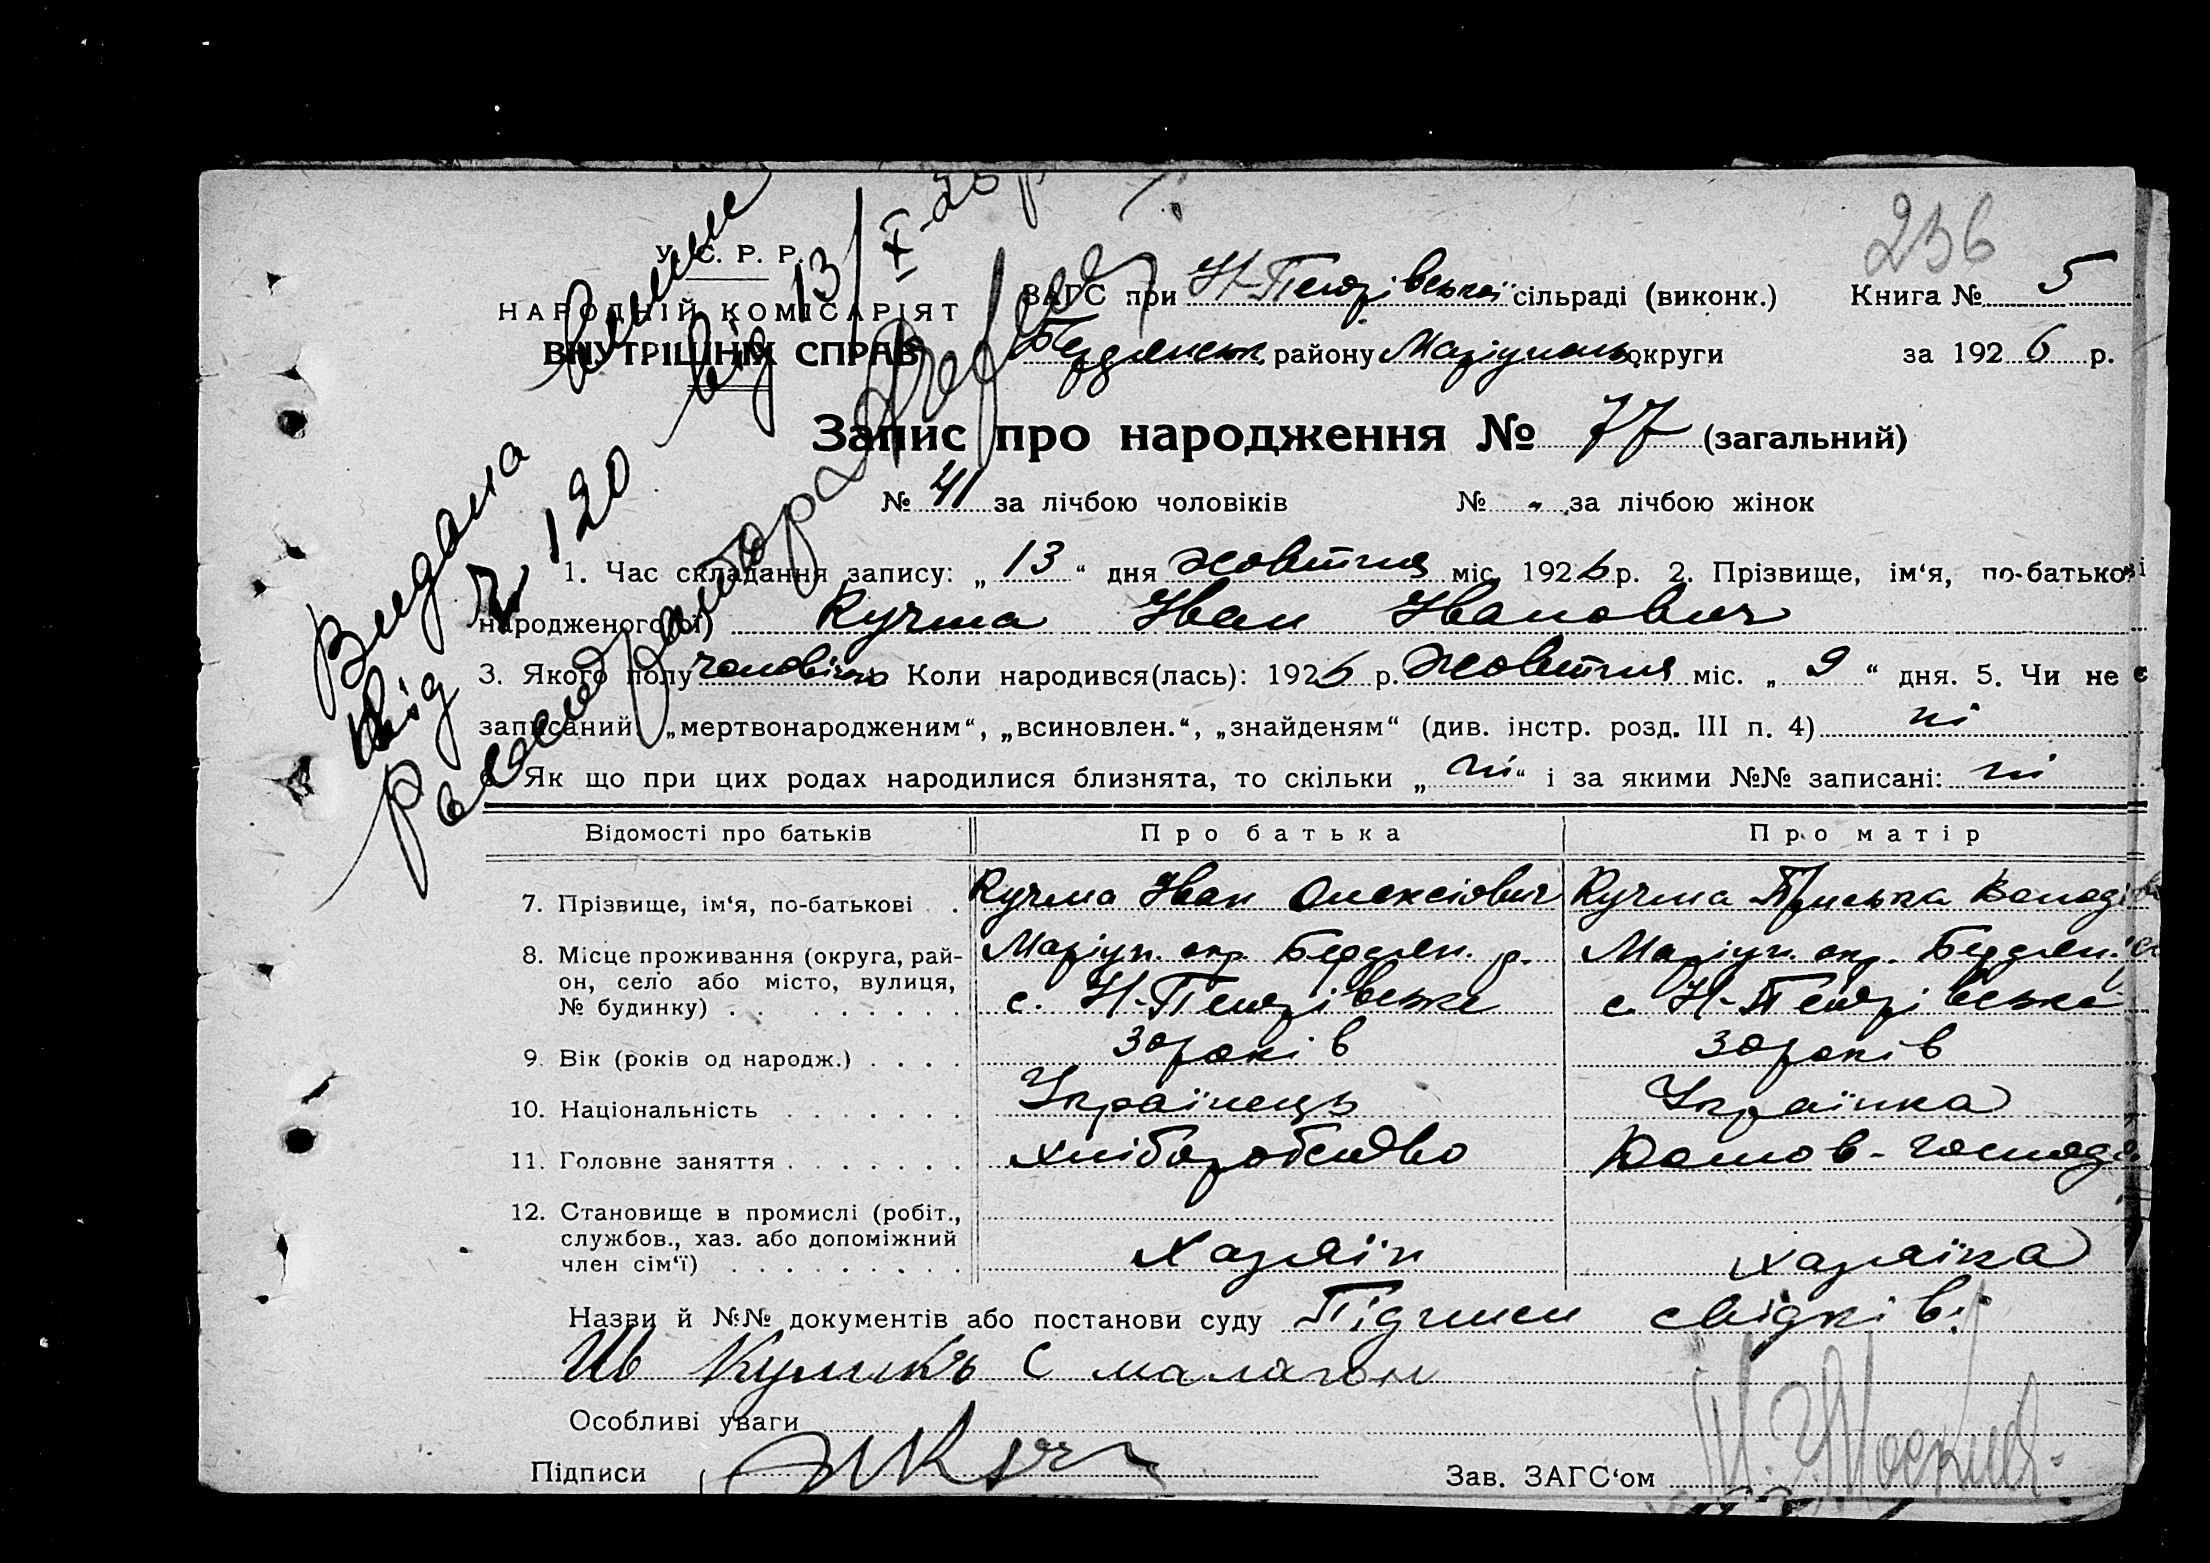 236
У. С. Р. Р.
НАРОДНІЙ КОМІСАРІЯТ
ВНУТРІШНІХ СПРАВ
ЗАГС при Н-Петрівської сільраді (виконк.) Книга № 5
Бердянськ району Маріуполь округи за 1926 р.
Видана
від 13/X-26 р
№ 120
Запис про народження № 77 (загальний)
№ 41 за лічбою чоловіків № „ за лічбою жінок
1. Час складання запису: „13“ дня жовтня міс. 1926 р. 2. Прізвище, ім‘я, по-батькові
народженого(ої) Кучма Іван Іванович
3. Якого полу чоловічь Коли народився(лась): 1926 р. жовтня міс. „9“ дня. 5. Чи не є
записаний: „мертвонародженим“, „всиновлен.“, „знайденям“ (див. інстр. розд. III п. 4) ні
6. Як що при цих родах народилися близнята, то скільки „ні“ і за якими №№ записані: ні
Відомості про батьків Про батька Про матір
7. Прізвище, ім‘я, по-батькові Кучма Іван Олексіович Кучма Приська Володів
8. Місце проживання (округа, рай- Маріуп. окр. Бердян. р. Маріуп. окр. Бердян.
он, село або місто, вулиця,
№ будинку) с. Н-Петрівське с. Н-Петрівське
9. Вік (років од народж.) 30 років 30 років
10. Національність Українець Українка
11. Головне заняття хліборобство Домов-господ.
12. Становище в промислі (робіт.,
службов., хаз. або допоміжний
член сім‘ї) Хазяїн хазяїка
Назви й №№ документів або постанови суду Підписи свідків:
Ив Куликъ С малагон
Особливі уваги
Підписи Зав. ЗАГС‘ом